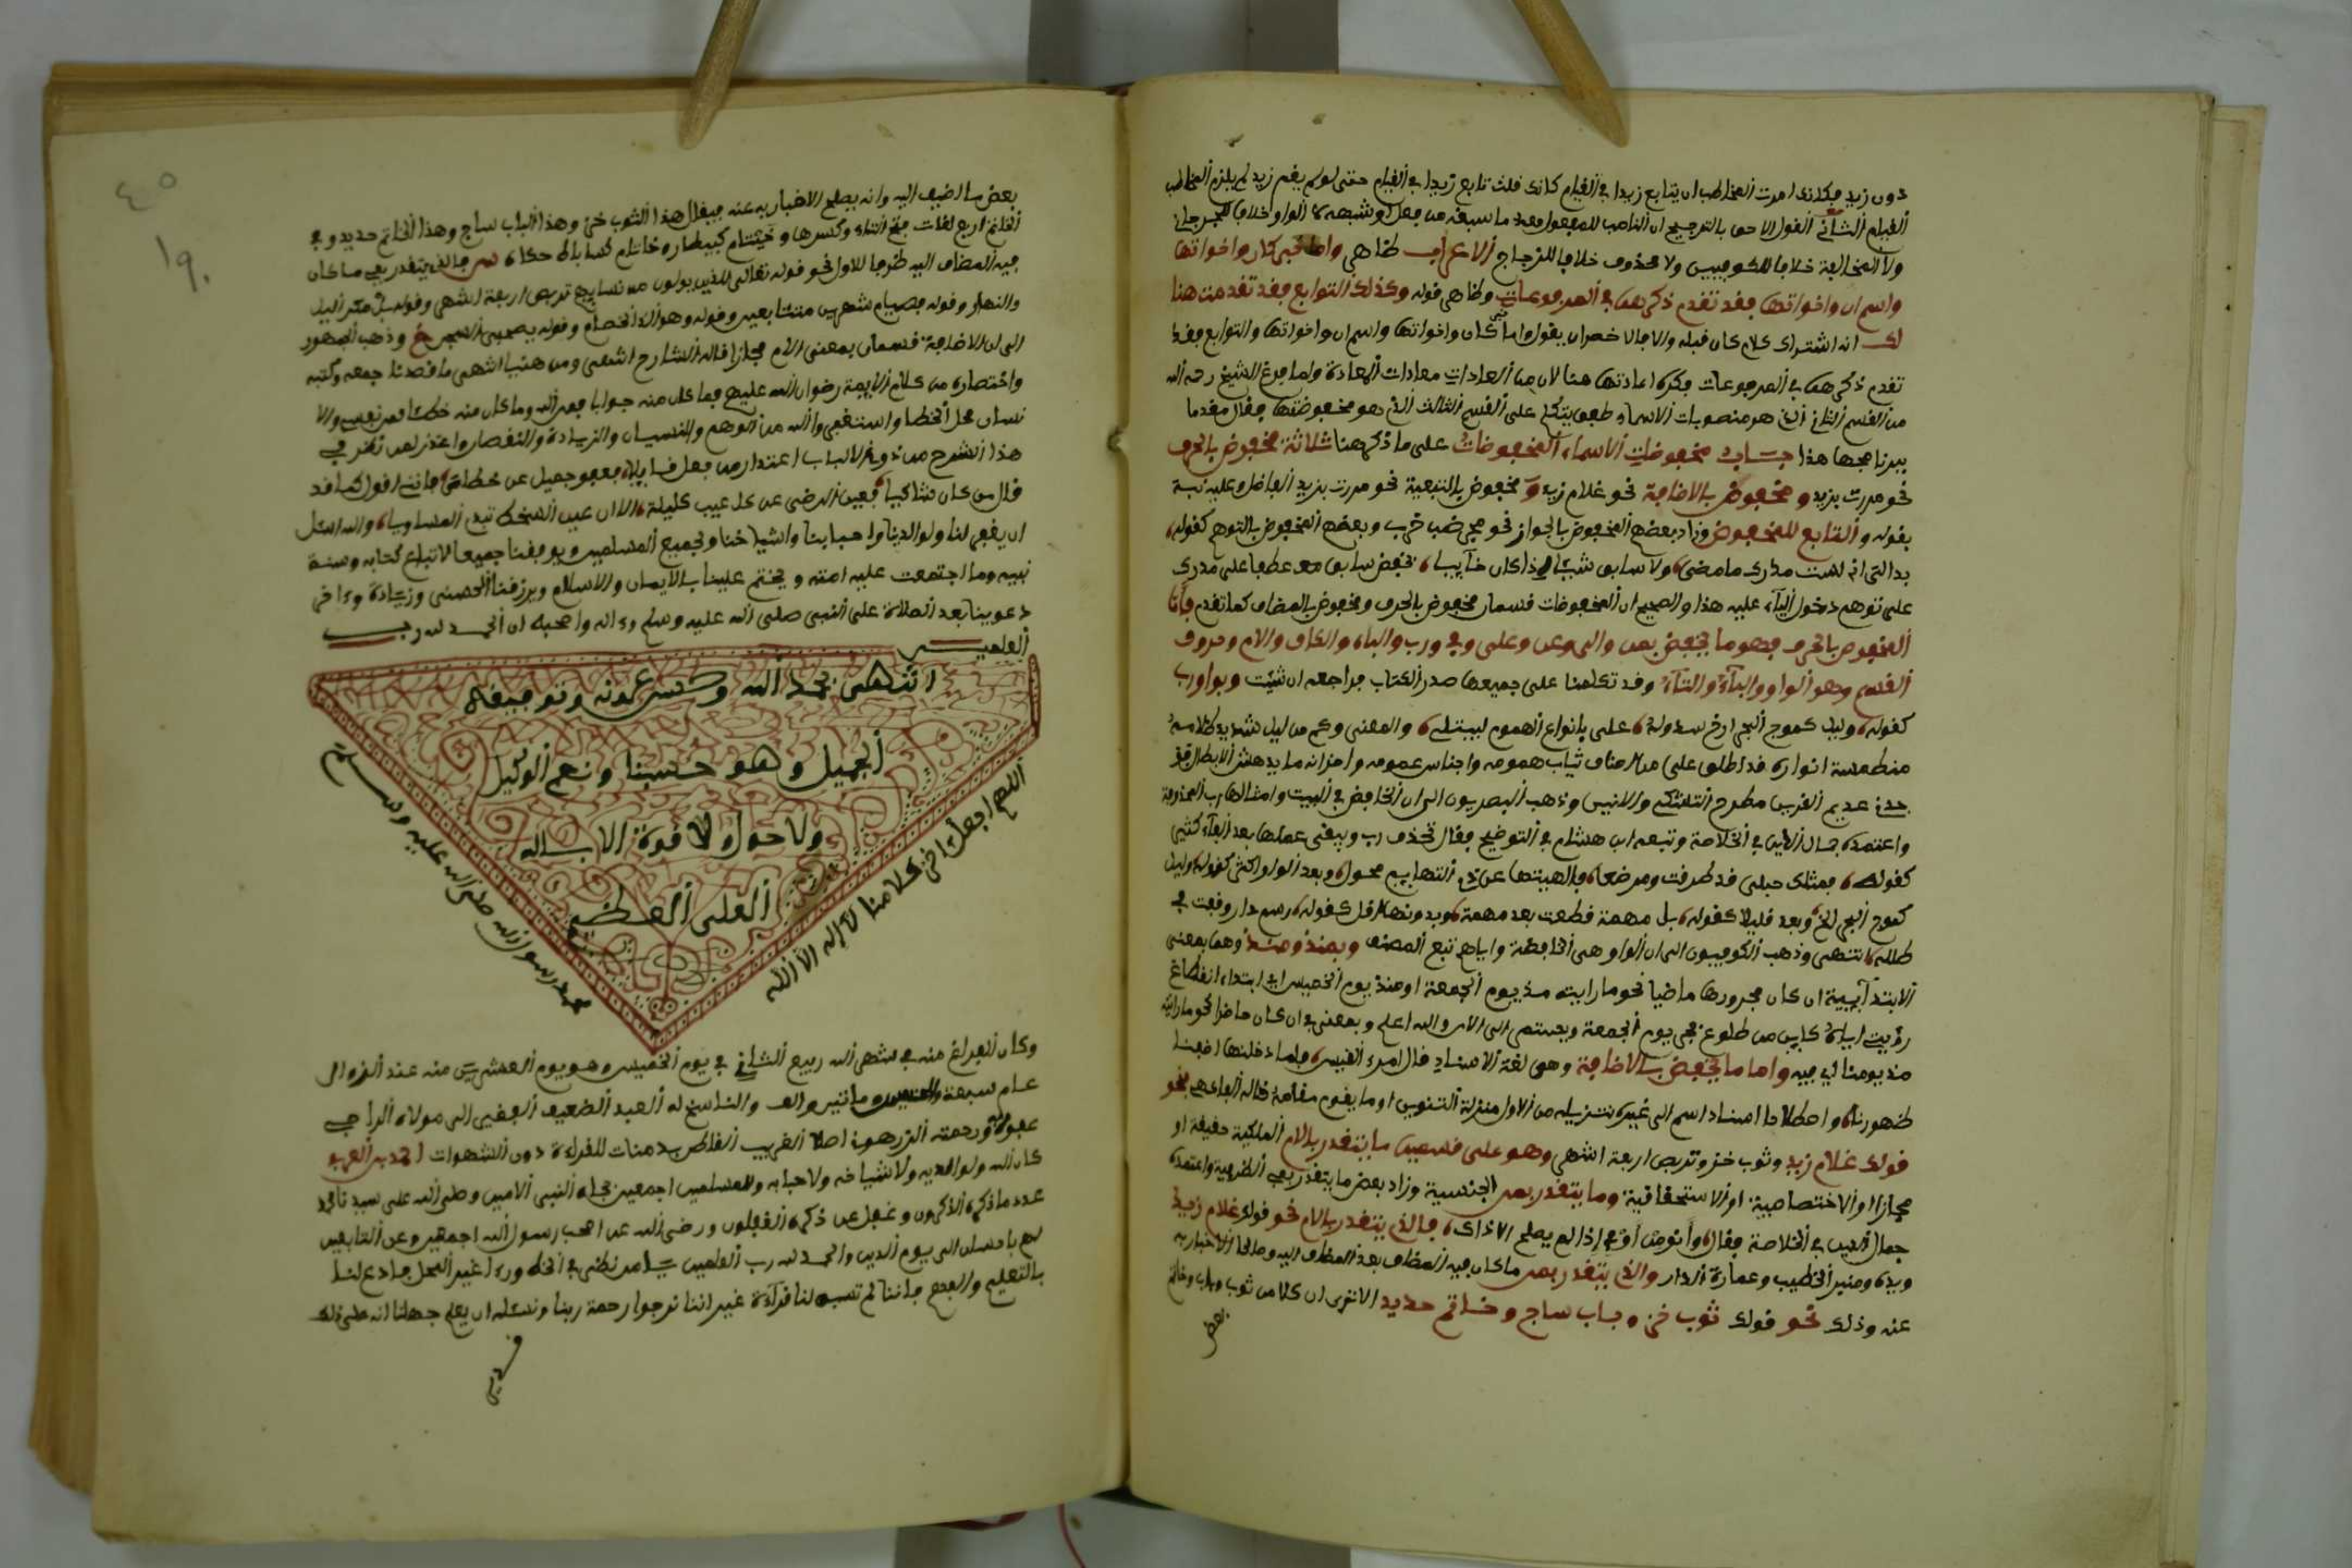 دون زيد فكانك امرت المخاطب ان يتابع زيدا في القيام كانك قلت تابع زيدا في القيام حتى لو لم يقم زيد لم يلزم المخاطب
القيام الثاني القول الاحق بالترجيح ان الناصب للمفعول معه ما سبقه من فعل او شبهه لا الواو خلافا للجرجاني
ولا المخالفة خلافا للكوفيين ولا محذوف خلافا للزجاج الاعراب ظاهر واما خبر كان واخواتها
واسم ان واخواتها فقد تقدم ذكرهما في المرفوعات وظاهر قوله وكذلك التوابع فقد تقدمت هنا
لك انه اشتراك كلام كان قبله والا فالاخصر ان يقول واما خبر كان واخواتها واسم ان واخواتها والتوابع فقد
تقدم ذكرهما في المرفوعات فكره اعادتها هنا لان من العادات معادات المعادة ولما فرغ الشيخ رحمه الله
من القسم الثاني الذي هو منصوبات الاسماء طفق يتكلم على القسم الثالث الذي هو مخفوضتها فقال مقدما
ببرنامجها هذا باب مخفوضات الاسماء المخفوضات على ما ذكر هنا ثلاثة مخفوض بالحرف
نحو مررت بزيد و مخفوض بالاضافة نحو غلام زيد و مخفوض بالتبعية نحو مررت بزيد الفاضل وعليه نبه
بقوله و التابع للمخفوض وزاد بعضهم المخفوض بالجوار نحو جحر ضب خرب وبعضهم المخفوض بالتوهم كقوله
بدا لي اني لست مدرك ما مضى ولا سابق شيئا اذا كان خآيبا بخفض سابق معه عطفا على مدرك
على توهم دخول البآء عليه هذا والصحيح ان المخفوضات قسمان مخفوض بالحرف ومخفوض بالمضاف كما تقدم فأما
المخفوض بالحرف فهو ما يخفض بمن والى وعن وعلى وفي ورب والباء والكاف والام وحروف
القسم وهو الواو والبآء والتآء وقد تكلمنا على جميعها صدر الكتاب فراجعه ان شئت وبواو رب
كقوله وليل كموج البحر ارخى سدوله على بانواع الهموم ليبتلى والمعنى وكم من ليل شديد ظلامه
منطمسة انواره قد اطلق على من اصناف ثياب همومه واجناس غمومه واحزانه ما يدهش الابطال
عديم القرين مطرح التفنك والانيس وذهب البصريون الى ان الخافض في البيت وامثالها رب المحذوفة
واعتمده جمال الدين في الخلاصة وتبعه ابن هشام في التوضيح فقال تحذف رب ويبقى عملها بعد الفآء كثير
كقوله فمثلك حبلى قد طرقت ومرضعا فالهيتها عن ذي التهاييم محول وبعد الواو اكثر كقوله وليل
كموج البحر الخ وبعد قليلا كقوله بل مهمة قطعت بعد مهمة وبدونها اقل كقوله رسم دار وقفت في
طلله انتهى وذهب الكوفيون الى ان الواو هي الخافضة واياهم تبع المصنف وبمذ ومنذ وهما بمعنى
الابتدآيية ان كان مجرورها ماضيا نحو ما رايته مذ يوم الجمعة او منذ يوم الخميس اي ابتداء انقطاع
رؤيتي اياه كاين من طلوع فجر يوم الجمعة ويستمر الى الان والله اعلم وبمعنى في ان كان حاضرا نحو ما رايته
منذ يومنا اي فيه واما ما يخفض بالاضافة وهي لغة الاسناد قال امرء القيس فلما دخلناها اضفنا
ظهورنا واصطلاحا اسناد اسم الى غيره بتنزيله من الاول منزلة التنوين او ما يقوم مقامه قاله الفاكهي نحو
قولك غلام زيد وثوب خز وتربص اربعة اشهر وهو على قسمين ما يتقدر بالام الملكية حقيقة او
مجازا او الاختصاصية او الاستحقاقية وما يتقدر بمن الجنسية وزاد بعض ما يتقدر بفي الظرفية واعتمده
جمال الدين في الخلاصة فقال وانو من او في اذا لم يصلح الا ذاك فالذي يتقدر بالام نحو قولك غلام زيد
ويده ومنبر الخطيب وعمارة الدار والذي يتقدر بمن ما كان فيه المضاف بعد المضاف اليه وصالحا للاخبار به
عنه وذلك نحو قولك ثوب خز وباب ساج وخاتم حديد الا ترى ان كلا من ثوب وباب وخاتم
بعض
٤٥
١٩٠
بعض ما اضيف اليه وانه يصلح الاخبار به عنه فيقال هذا الثوب خز وهذا الباب ساج وهذا الخاتم حديد وفي
الخاتم اربع لغات فتح التاء وكسرها وخيتام كبيطار وخاتام كساباط حكاه والذي يتقدر بفي ما كان
فيه المضاف اليه ظرفا للاول نحو قوله تعالى للذين يولون من نسايهم تربص اربعة اشهر وقوله بل مكر اليل
والنهار وقوله فصيام شهرين متتابعين وقوله وهو الد الخصام وقوله يصحبي السجن الخ وذهب الجمهور
الى ان الاضافة قسمان بمعنى الام مجازا قاله الشارح انتهى ومن هنا انتهى ما قصدنا جمعه وكتبه
واختصاره من كلام الايمة رضوان الله عليهم فما كان منه جوابا فمن الله وما كان منه خطئا فمن نفسي والا
نسان محل الخطا واستغفر الله من الوهم والنسيان والزيادة والنقصان واعتذر لمن نظر في
هذا الشرح من ذوي الالباب اعتذار من فعل فليلا فعفو جميل عن خطاءى فانني اقول كما قد
قال من كان شاكيا فعين الرضى عن كل عيب كليلة الا ان عين السخط تبدي المساويا والله اسئل
ان يغفر لنا ولوالدينا واحبابنا واشياخنا ولجميع المسلمين ويوفقنا جميعا لاتباع كتابه وسنة
نبيه وما اجتمعت عليه امته ويختم علينا بالايمان والاسلام ويرزقنا الحسنى وزيادة وءاخر
دعوينا بعد الصلاة على النبي صلى الله عليه وسلم وءاله واصحبه ان الحمد لله رب
العلمين
انتهى بحمد الله وحسن عونه وتوفيقه
الجميل وهو حسبنا ونعم الوكيل
ولا حول ولا قوة الا بالله
العلي العظيم
اللهم اجعل ءاخر كلامنا لا إله الا الله
محمد رسول الله صلى الله عليه وسلم
وكان الفراغ منه في شهر الله ربيع الثاني في يوم الخميس وهو يوم العشرين منه عند الزوال
عام سبعة ومائتين والف والناسخ له العبد الضعيف الفقير الى مولاه الراجي
عفوه ورحمته الزرهوني اصلا الغريب القاطن بدمنات للقراءة دون الشهوات احمد بن العربي
كان الله له ولوالديه ولاشياخه ولاحبابه وللمسلمين اجمعين بجاه النبي الامين وصلى الله على سيدنا محمد
عدد ما ذكره الذكرون وغفل عن ذكره الغفلون ورضي الله عن اصحب رسول الله اجمعين وعن التابعين
لهم باحسان الى يوم الدين والحمد لله رب العلمين يا من نظر في الخط ورءا غير المحل فادع لنا
بالتعليم والفتح فاننا لم تسبق لنا قرآءة غير اننا نرجوا رحمة ربنا ونسئله ان يعلم جهلنا انه على ذلك
قدير